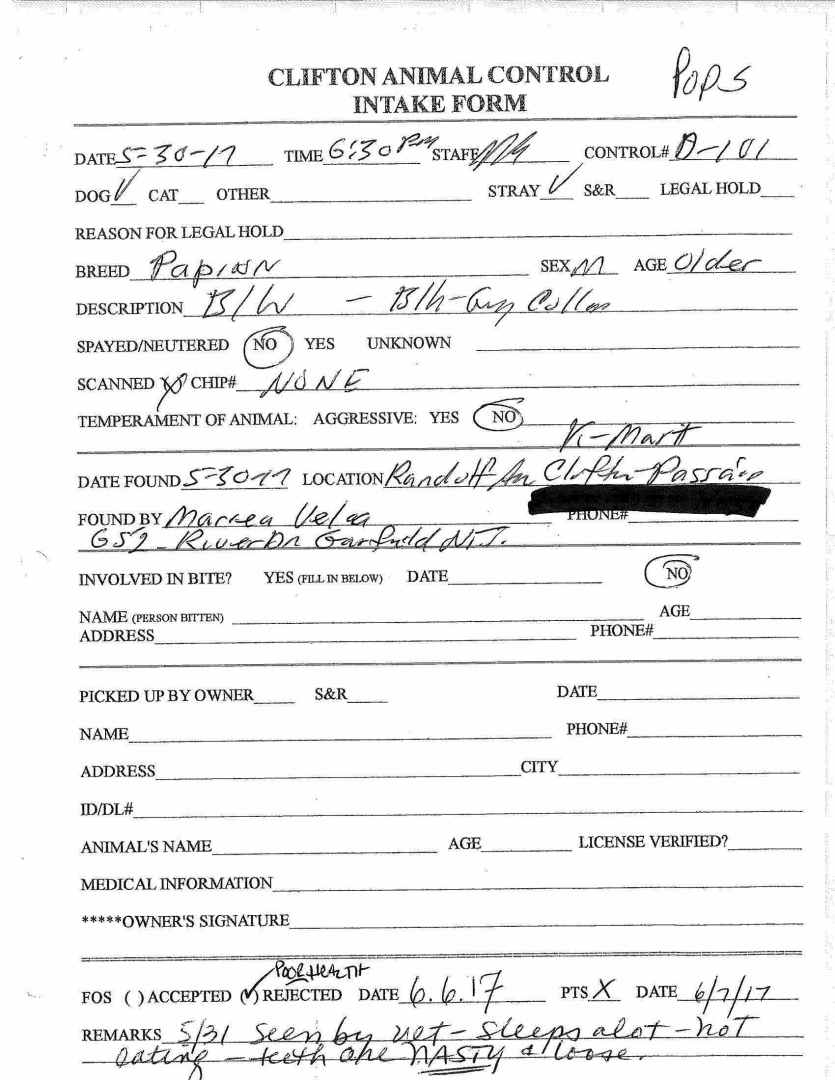 CLIFTON ANIMAL CONTROL
INTAKE FORM
Pops
DATE 5-30-17 TIME 6:30 PM STAFF CONTROL# D-101
DOG ✓ CAT OTHER STRAY ✓ S&R LEGAL HOLD
REASON FOR LEGAL HOLD
BREED Papion SEX M AGE Older
DESCRIPTION B/W - Blk-Gry Collar
SPAYED/NEUTERED NO YES UNKNOWN
SCANNED CHIP# NONE
TEMPERAMENT OF ANIMAL: AGGRESSIVE: YES NO
K-Mart
DATE FOUND 5-30-17 LOCATION Randolf Av Clifton-Passaic
FOUND BY PHONE#
652 - River Dr Garfield N.J.
INVOLVED IN BITE? YES (FILL IN BELOW) DATE NO
NAME (PERSON BITTEN) AGE
ADDRESS PHONE#
PICKED UP BY OWNER S&R DATE
NAME PHONE#
ADDRESS CITY
ID/DL#
ANIMAL'S NAME AGE LICENSE VERIFIED?
MEDICAL INFORMATION
*****OWNER'S SIGNATURE
POOR HEALTH
FOS ( ) ACCEPTED (✓) REJECTED DATE 6.6.17 PTS X DATE 6/7/17
REMARKS 5/31 Seen by vet - Sleeps alot - not
eating - teeth are NASTY & loose.